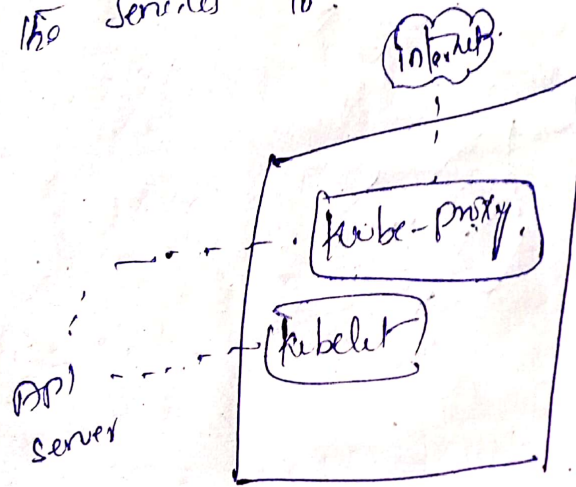 services to.
internet.
kube-proxy.
kubelet
API
server